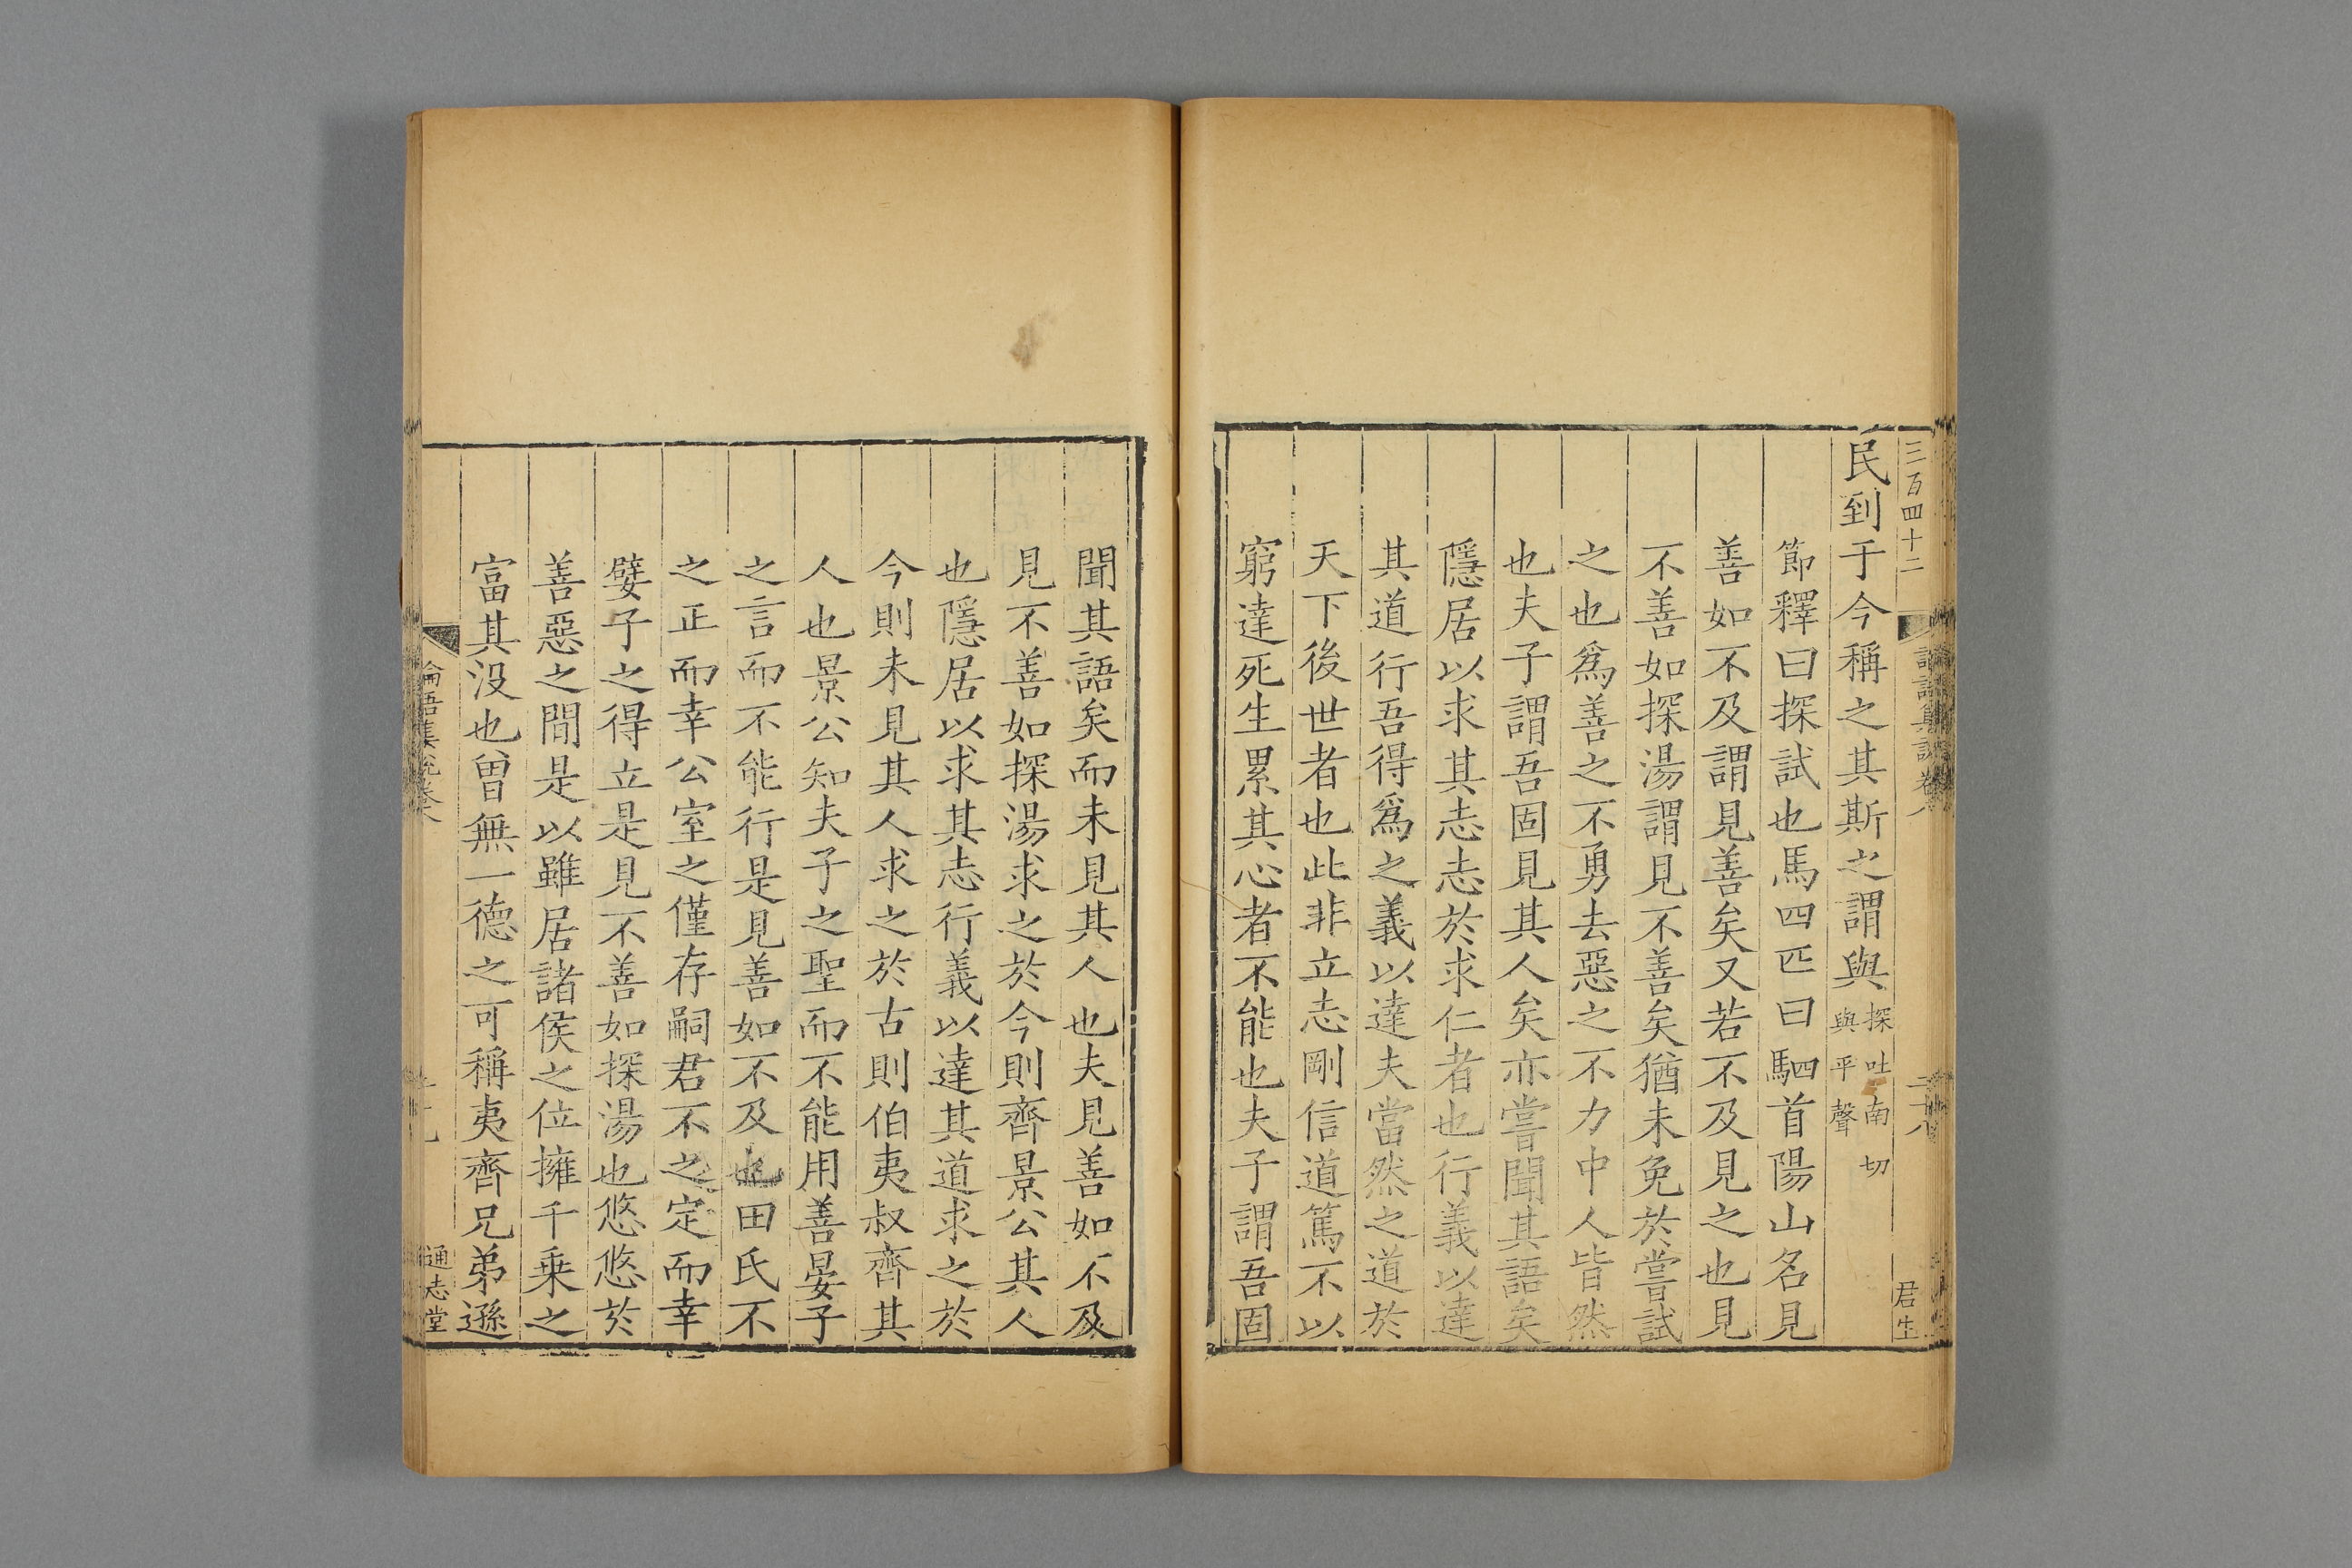 三百四十二
民到于今稱之其斯之謂與
探吐南切
與平聲
節釋曰探試也馬四匹曰駟首陽山名見
善如不及謂見善矣又若不及見之也見
不善如探湯謂見不善矣猶未免於嘗試
之也爲善之不勇去惡之不力中人皆然
也夫子謂吾固見其人矣亦嘗聞其語矣
隱居以求其志志於求仁者也行義以達
其道行吾得爲之義以達夫當然之道於
天下後世者也此非立志剛信道篤不以
窮達死生累其心者不能也夫子謂吾固
君生
聞其語矣而未見其人也夫見善如不及
見不善如探湯求之於今則齊景公其人
也隱居以求其志行義以達其道求之於
今則未見其人求之於古則伯夷叔齊其
人也景公知夫子之聖而不能用善晏子
之言而不能行是見善如不及也田氏不
之正而幸公室之僅存嗣君不之定而幸
嬖子之得立是見不善如探湯也悠悠於
善惡之間是以雖居諸侯之位擁千乗之
富其没也曽無一德之可稱夷齊兄弟遜
論語集說卷八
通志堂